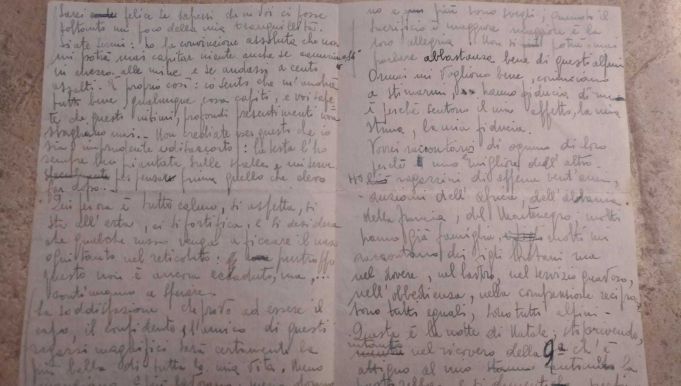 Sarei felice se sapessi che in voi ci fosse
soltanto un poco della mia tranquillità.
Siate sereni: ho la convinzione assoluta che non
mi potrà mai capitar niente anche se camminassi
in mezzo alle mine e se andassi a cento
assalti. È proprio così: io sento che mi andrà
tutto bene, qualunque cosa capiti, e voi sape-
te che questi intimi, profondi presentimenti non
sbagliano mai. Non crediate per questo che io
sia imprudente : la testa l'ho
sempre ben piantata sulle spalle e mi serve
per pensare prima quello che devo
far dopo.
Qui per ora è tutto calmo, si aspetta, si
sta all'erta, ci si fortifica, e si desidera
che qualche russo venga a ficcare il naso
nel reticolato: purtroppo
questo non è ancora accaduto, ma, ...
continuiamo a sperare.
La soddisfazione che provo ad essere il
capo, il confidente, l'amico di questi
ragazzi magnifici sarà certamente la
più bella di tutta la mia vita.
no e più sono svegli, quanto il
sacrificio è maggiore maggiore è la
loro allegria. Non si potrà mai
parlare abbastanza bene di questi alpini.
Ormai mi vogliono bene, cominciano
a stimarmi, hanno fiducia di me
è perché sentono il mio affetto, la mia
stima, la mia fiducia.
Vorrei raccontarvi di ognuno di loro
perché uno migliore dell'altro.
Ho ragazzini di appena vent'anni,
anziani dell'Africa, dell'Albania
della Francia, del Montenegro: molti
hanno già famiglia, molti mi
raccontano dei figli lontani ma
nel dovere, nel lavoro, nel servizio gravoso,
nell'obbedienza, nella comprensione recipro
sono tutti eguali, sono tutti alpini.
Questa è la notte di Natale, sto scrivendo,
nel ricovero della 9a ch'è
attiguo al mio la